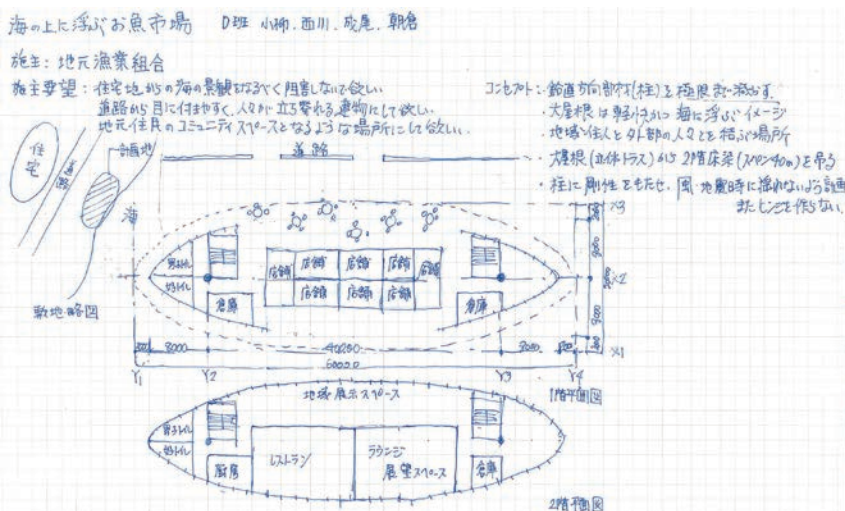 海の上に浮ぶお魚市場 D班 小柳、西川、成尾、朝倉
施主:地元漁業組合
施主要望:住宅地からの海の景観をなるべく阻害しないで欲しい
道路から目に付きやすく、人々が立ち寄れる建物にして欲しい。
地元住民のコミュニティスペースとなるような場所にして欲しい。
コンセプト:・鉛直方向部材(柱)を極限まで減らす。
・大屋根は軽快かつ海に浮ぶイメージ
・地域住人と外部の人々とを結ぶ場所
・大屋根(立体トラス)から2階床梁(スパン40m)を吊る
・柱に剛性をもたせ、風・地震時に揺れないよう計画
またピンを作らない。
住宅
道路
計画地
海
敷地略図
道路
男子トイレ
女子トイレ
倉庫
店舗
店舗 店舗 店舗 店舗
店舗 店舗 店舗 店舗
店舗
倉庫
X3
X2
X1
9000
9000
8000
40000
8000
60000
Y1 Y2 Y3 Y4
1階平面図
地域展示スペース
男子トイレ
女子トイレ
厨房
レストラン
ラウンジ
展望スペース
倉庫
2階平面図